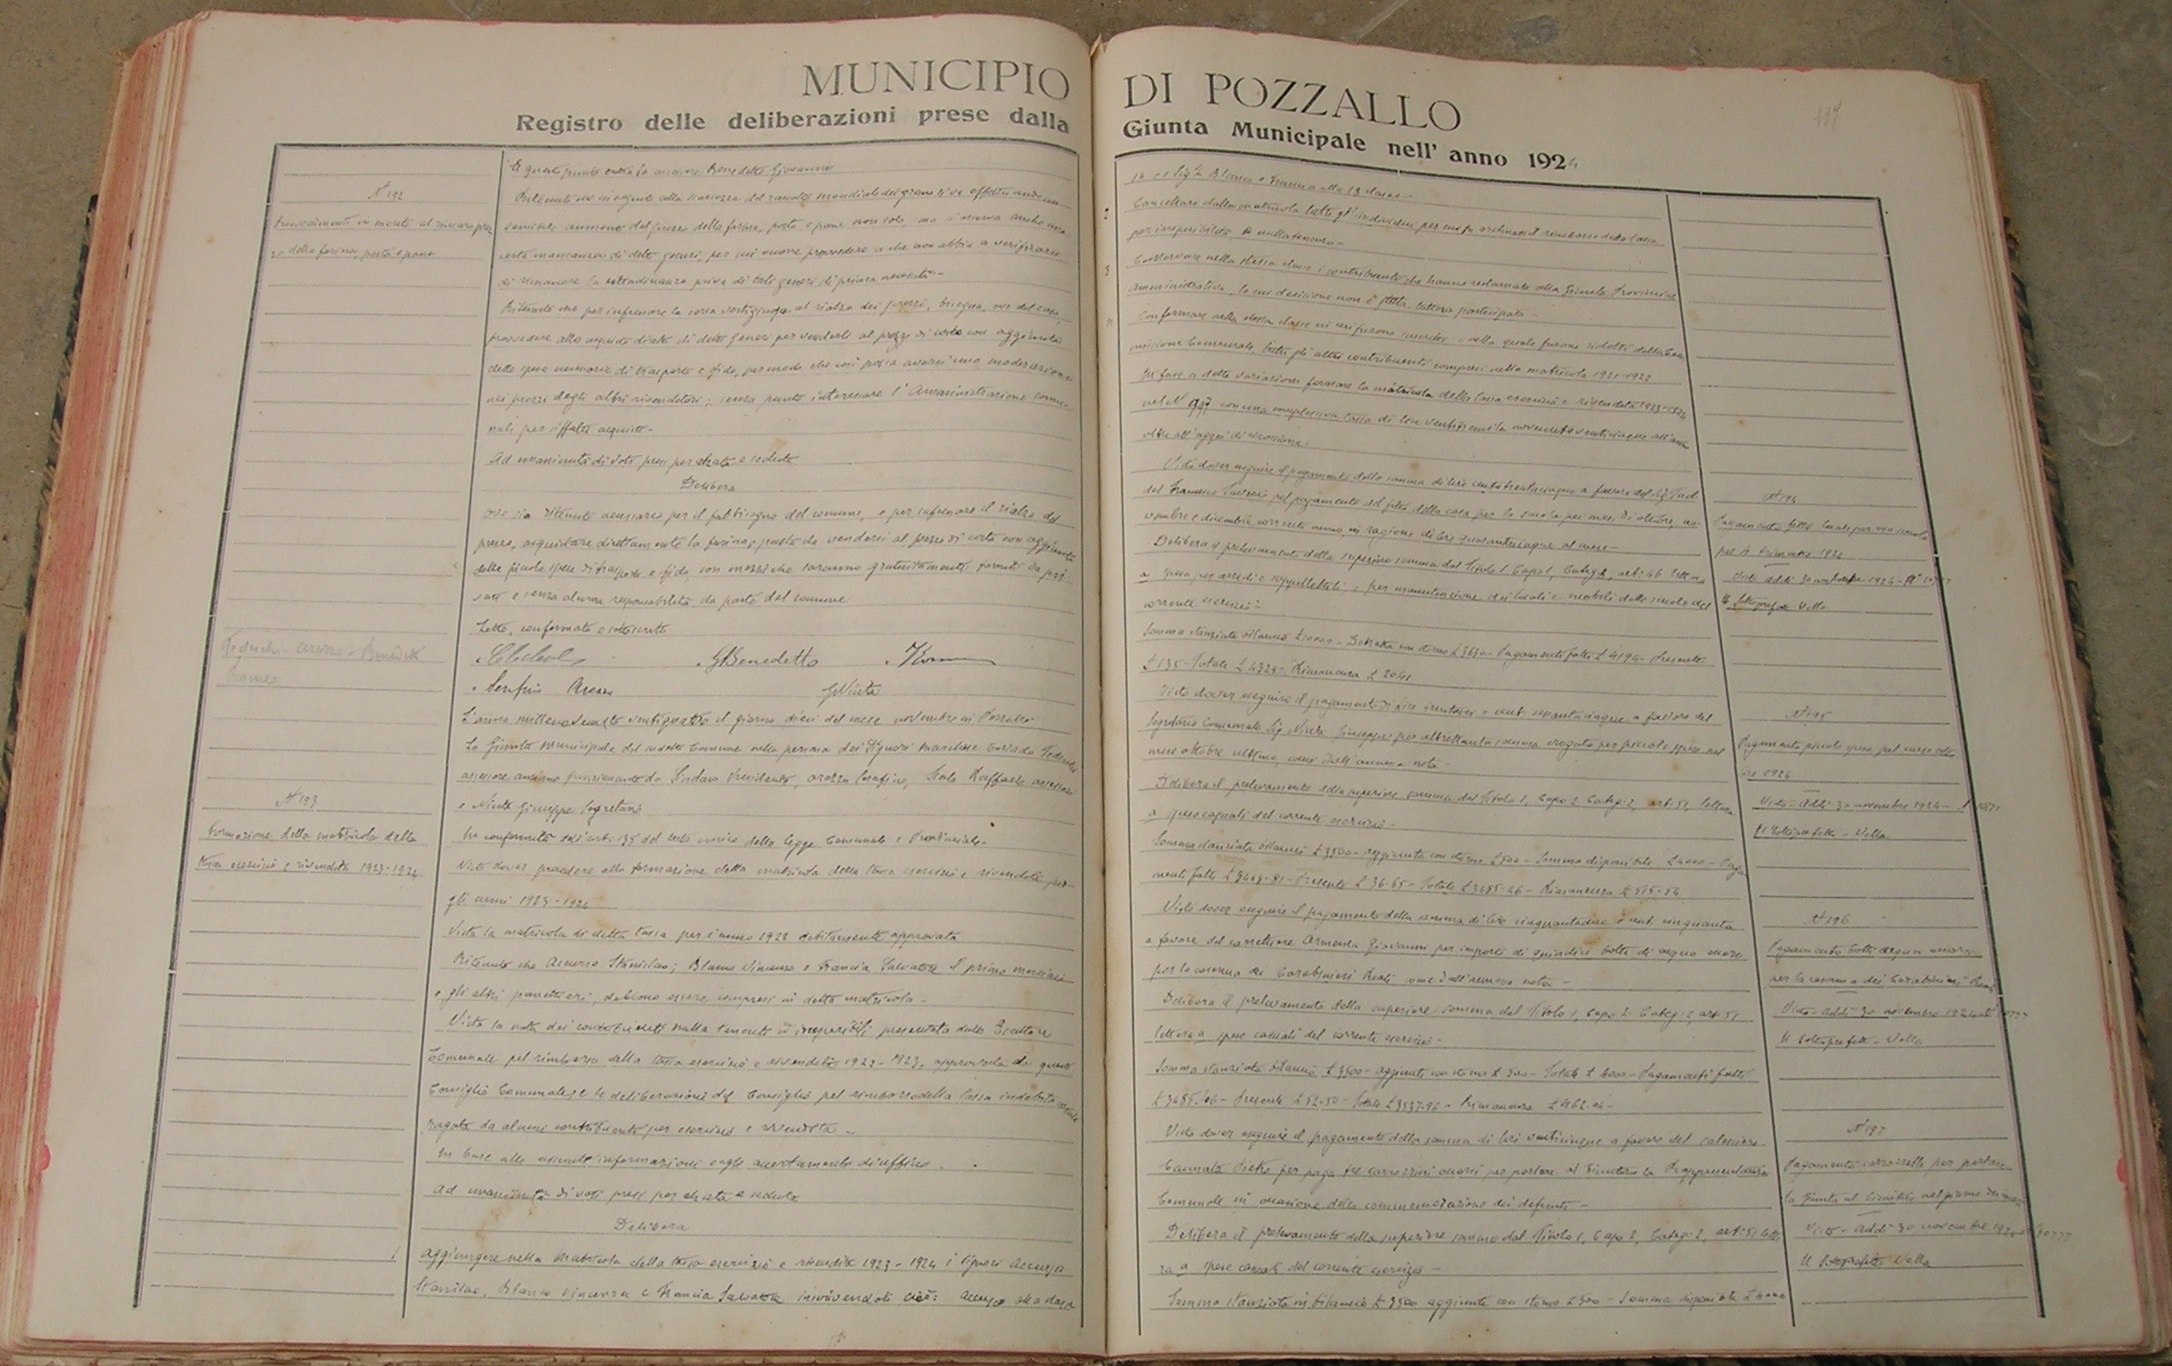 MUNICIPIO
Registro delle deliberazioni prese dalla
N° 192
Provvedimenti in merito al rincaro prez
zo della farina, pasta e pane
A questo punto entra lo assessore Benedetto Giovanni
Ritenuto che in seguito alla scarsezza del raccolto mondiale del grano si va effettuando un
sensibile aumento del prezzo della farina, pasta e pane non solo, ma si osserva anche una
certa mancanza di detti generi, per cui occorre provvedere a che non abbia a verificarsi
di rimanere la cittadinanza priva di tali generi di prima necessità -
Ritenuto che per infrenare la corsa vertiginosa al rialzo dei prezzi, bisogna, ove del caso,
provvedere allo acquisto diretto di detti generi per venderli al prezzo di costo con aggiunta
delle spese necessarie di trasporto e sfido, per modo che così possa aversi una moderazione
nei prezzi degli altri rivenditori; senza punto interessare l'Amministrazione comu-
nale per siffatti acquisti -
Ad unanimità di voti presi per alzata e seduta
Delibera
Ove sia ritenuto necessario per il fabbisogno del comune, e per infrenare il rialzo del
prezzo, acquistare direttamente la farina e pasta da vendersi al prezzo di costo con aggiunta
delle piccole spese di trasporto e sfido, con mezzi che saranno gratuitamente forniti da pri-
vati e senza alcuna responsabilità da parte del comune
Letto, confermato e sottoscritto
GBenedetto
Serafino
GNinta
L'anno millenovecento ventiquattro il giorno dieci del mese novembre in Pozzallo
La Giunta municipale del suddetto Comune nella persona dei Signori Marchese Corrado Tedeschi
assessore anziano funzionante da Sindaco Presidente, Serafino, Raffaele assessori
e Giuseppe Segretario
N° 193
Formazione della matricola della
tassa esercizi e rivendite 1923-1924
In conformità dell'art. 135 del testo unico della legge Comunale e Provinciale -
Visto dover procedere alla formazione della matricola della tassa esercizi e rivendite per
gli anni 1923 - 1924
Vista la matricola di detta tassa per l'anno 1922 debitamente approvata
Ritenuto che Stanislao; Blanco Vincenzo e Francia Salvatore il primo
e gli altri panettieri, debbono essere compresi in detta matricola -
Vista la nota dei contribuenti nulla tenenti ed irreperibili presentata dallo Esattore
Comunale pel rimborso della tassa esercizi e rivendite approvata da questo
Consiglio Comunale; e le deliberazioni del Consiglio pel rimborso della tassa indebitamente
pagata da alcuni contribuenti per esercizi e rivendita -
In base alle assunte informazioni e agli accertamenti d'ufficio -
Ad unanimità di voti presi per alzata e seduta
Delibera
1 Aggiungere nella matricola della tassa esercizi e rivendite 1923 - 1924 i Signori
Stanislao, Blanco Vincenzo e Francia Salvatore inscrivendoli cioè: alla classe
DI POZZALLO
Giunta Municipale nell'anno 1924
187
Blanco e Francia alla 13 classe -
2 Cancellare dalla matricola tutti gl'individui per cui fu ordinato il rimborso della tassa
per irreperibilità, o nullatenenza -
3 Conservare nella stessa classe i contribuenti che hanno reclamato alla Giunta Provinciale
Amministrativa, la cui decisione non è stata tuttora partecipata -
Confermare nella stessa classe in cui furono inscritti o nella quale furono ridotti dalla Com
missione Comunale, tutti gli altri contribuenti compresi nella matricola
In base a dette variazioni formare la matricola della tassa esercizi e rivendite 1923-1924
nel N° 997 con una complessiva tassa di lire ventitremila novecentoventicinque all'anno
oltre all'aggio di riscossione.
N° 194
Pagamento fitto locale per una scuola
per 4° trimestre 1924
Visto addì 30 novembre 1924 -
Il Sottoprefetto Vella
Visto dover eseguire il pagamento della somma di lire centotrentacinque a favore del Sig.
del Francesco pel pagamento del fitto della casa per la scuola pei mesi di ottobre, no
vembre e dicembre corrente anno, in ragione di lire quarantacinque al mese -
Delibera il prelevamento della superiore somma dal Titolo 1, Capo 1, Categ. 2, art. 46 lettera
a spesa per arredi e suppellettili, e per manutenzione dei locali e mobili delle scuole del
corrente esercizio -
Somma stanziata bilancio £ 10000 - Detratta con storno £ 3630 - Pagamenti fatti £ 4194 - Presente
£ 135 - Totale £ 4329 - Rimanenza £ 2041
N° 195
Pagamento piccole spese pel mese otto
bre 1924
Visto - Addì 30 novembre 1924 -
Il Sottoprefetto - Vella
Visto dover eseguire il pagamento di lire trentasei e cent. sessantacinque a favore del
Segretario Comunale Sig. Giuseppe per altrettanta somma erogata per piccole spese nel
mese ottobre ultimo, come dall'annessa nota -
Delibera il prelevamento della superiore somma dal Titolo 1, Capo 2 Categ. 2, art. 51, lettera
a spese casuali del corrente esercizio -
Somma stanziata bilancio £ 3500 - aggiunta con storno £ 500 - Somma disponibile £ 4000 - Paga
menti fatti £ 3448-81 - Presente £ 36-65 - Totale £ 3485-46 - Rimanenza £ 515-54
N° 196
Pagamento botti acqua occorsa
per la caserma dei Carabinieri Reali
Visto - Addì 30 novembre 1924
Il Sottoprefetto - Vella
Visto dover eseguire il pagamento della somma di lire cinquantadue e cent. cinquanta
a favore del carrettiere Armenia Giovanni per importo di quindici botti di acqua occorse
per la caserma dei Carabinieri Reali come dall'annessa nota -
Delibera il prelevamento della superiore somma dal Titolo 1, Capo 2 Categ. 2, art. 51
lettera a spese casuali del corrente esercizio -
Somma stanziata bilancio £ 3500 - aggiunti con storno £ 500 - Totale £ 4000 - Pagamenti fatti
£ 3485-46 - Presente £ 52-50 - Totale £ 3537-96 - Rimanenza £ 462-04 -
N° 197
Pagamento carrozzelle per portare
la Giunta al Cimitero nel giorno dei morti
Visto - Addì 30 novembre 1924
Il Sottoprefetto Vella
Visto dover eseguire il pagamento della somma di lire venticinque a favore del
Cannata Pietro per paga tre carrozzini occorsi per portare al Cimitero la Rappresentanza
Comunale in occasione della commemorazione dei defunti -
Delibera il prelevamento della superiore somma dal Titolo 1, Capo 2, Categ. 2, art. 51 lette
ra a spese casuali del corrente esercizio -
Somma stanziata in bilancio £ 3500 aggiunte con storno £ 500 - Somma disponibile £ 4000